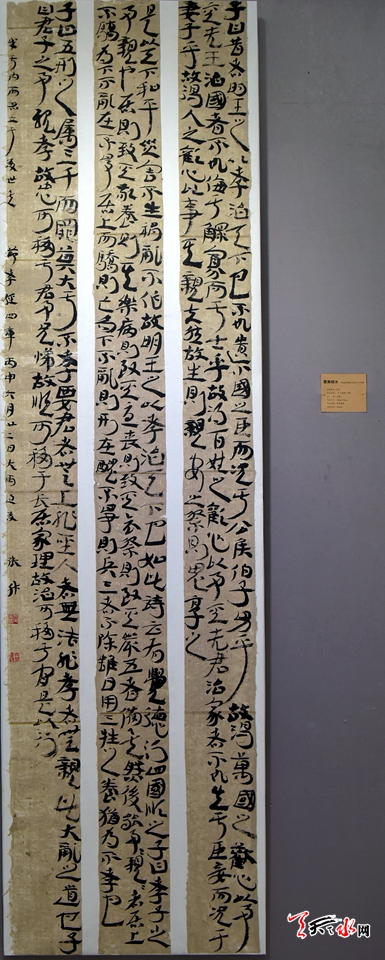 子曰昔者明王之以孝治天下也不敢遺小國之臣而況于公侯伯子男乎故得萬國之歡心以事
其先王治國者不敢侮于鰥寡而況于士乎故得百姓之歡心以事其先君治家者不敢失于臣妾而況于
妻子乎故得人之歡心以事其親夫然故生則親安之祭則鬼享之
是以天下和平災害不生禍亂不作故明王之以孝治天下也如此詩云有覺德行四國順之子曰孝子之
事親也居則致其敬養則致其樂病則致其憂喪則致其哀祭則致其嚴五者備矣然後能事親事親者居上
不驕為下不亂在醜不爭居上而驕則亡為下不亂則刑在醜不爭則兵三者不除雖日用三牲之養猶為不孝也
子曰五刑之屬三千而罪莫大于不孝要君者無上非聖人者無法非孝者無親此大亂之道也子
曰君子之事親孝故忠可移于君事兄悌故順可移于長居家理故治可移于官是以行
成于內而名立于後世矣 節孝經四章丙申六月廿二日 張
天天水网